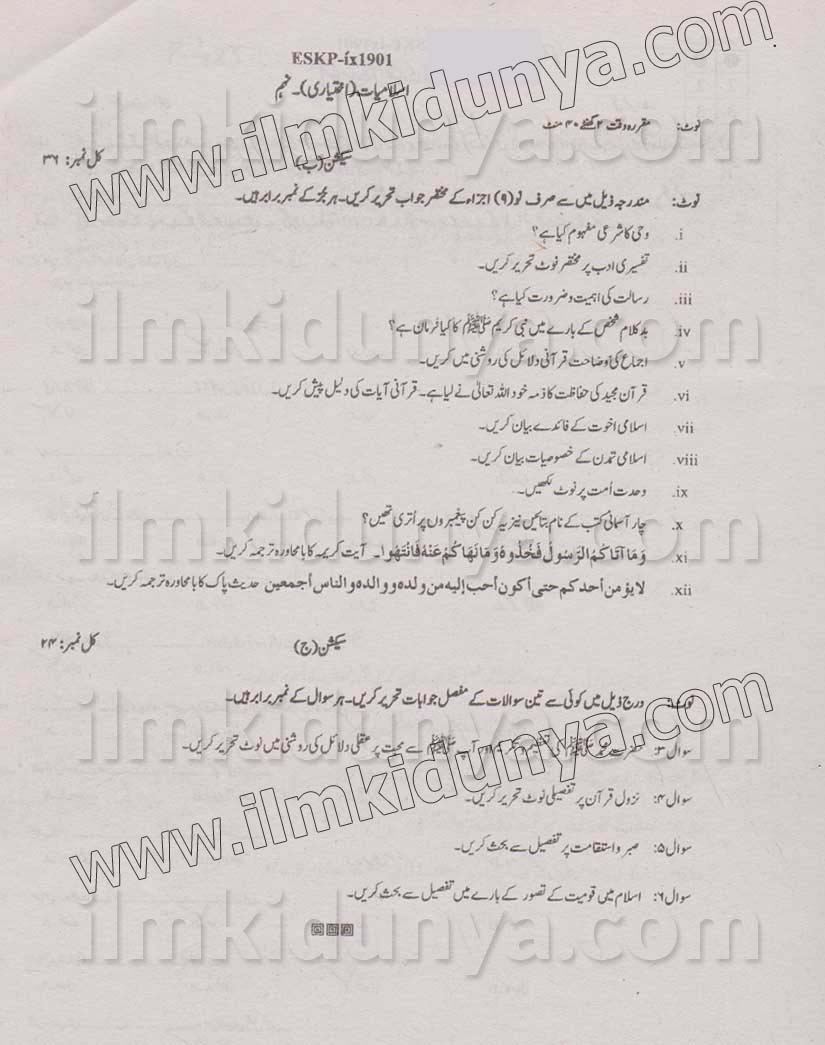 ESKP-ix1901
اسلامیات (اختیاری)۔ نہم
نوٹ: مقررہ وقت ۲ گھنٹے ۴۰ منٹ
سیکشن (ب) کل نمبر: ۳۶
نوٹ: مندرجہ ذیل میں سے صرف نو (۹) اجزاء کے مختصر جواب تحریر کریں۔ ہر جُز کے نمبر برابر ہیں۔
i. وحی کا شرعی مفہوم کیا ہے؟
ii. تفسیری ادب پر مختصر نوٹ تحریر کریں۔
iii. رسالت کی اہمیت و ضرورت کیا ہے؟
iv. بد کلام شخص کے بارے میں نبی کریم ﷺ کا کیا فرمان ہے؟
v. اجماع کی وضاحت قرآنی دلائل کی روشنی میں کریں۔
vi. قرآن مجید کی حفاظت کا ذمہ خود اللہ تعالیٰ نے لیا ہے۔ قرآنی آیات کی دلیل پیش کریں۔
vii. اسلامی اخوت کے فائدے بیان کریں۔
viii. اسلامی تمدن کے خصوصیات بیان کریں۔
ix. وحدت اُمت پر نوٹ لکھیں۔
x. چار آسمانی کتب کے نام بتائیں نیز یہ کن کن پیغمبروں پر اُتری تھیں؟
xi. وَمَا آتَاكُمُ الرَسولُ فَخُذُوهُ وَمَا نَهَاكُمْ عَنْهُ فَانْتَهُوا۔ آیت کریمہ کا با محاورہ ترجمہ کریں۔
xii. لا يؤمن أحدكم حتى أكون أحب إليه من ولده و والده والناس أجمعين حدیث پاک کا با محاورہ ترجمہ کریں۔
سیکشن (ج) کل نمبر: ۲۴
نوٹ: درج ذیل میں کوئی سے تین سوالات کے مفصل جوابات تحریر کریں۔ ہر سوال کے نمبر برابر ہیں۔
سوال ۳: حضرت محمد ﷺ کی تعظیم و تکریم اور آپ ﷺ سے محبت پر عقلی دلائل کی روشنی میں نوٹ تحریر کریں۔
سوال ۴: نزول قرآن پر تفصیلی نوٹ تحریر کریں۔
سوال ۵: صبر و استقامت پر تفصیل سے بحث کریں۔
سوال ۶: اسلام میں قومیت کے تصور کے بارے میں تفصیل سے بحث کریں۔
www.ilmkidunya.com
www.ilmkidunya.com
ilmkidunya.com
ilmkidunya.com
ilmkidunya.com
ilmkidunya.com
ilmkidunya.com